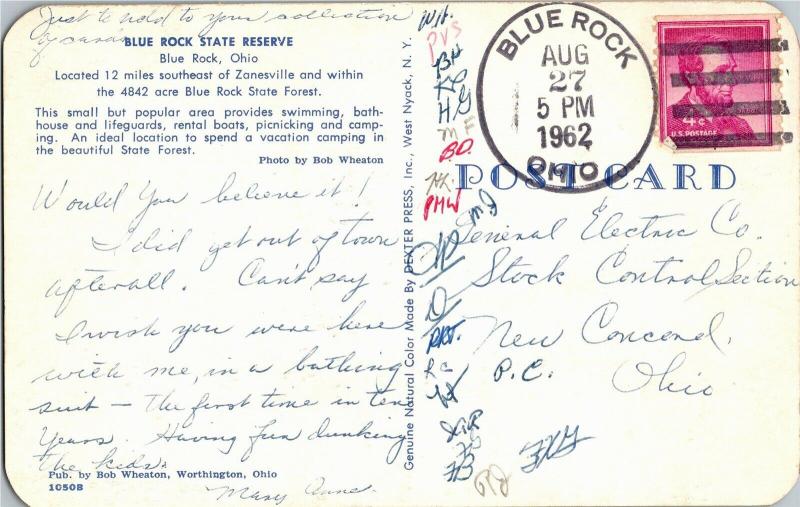 Just to add to your collection
of cards
BLUE ROCK STATE RESERVE
Blue Rock, Ohio
Located 12 miles southeast of Zanesville and within
the 4842 acre Blue Rock State Forest.
This small but popular area provides swimming, bath-
house and lifeguards, rental boats, picnicking and camp-
ing. An ideal location to spend a vacation camping in
the beautiful State Forest.
Photo by Bob Wheaton
Would You believe it!
I did get out of town
afterall. Can't say
I wish you were here
with me, in a bathing
suit — the first time in ten
years. Having fun dunking
the kids.
Mary Anne
Pub. by Bob Wheaton, Worthington, Ohio
1050B
Genuine Natural Color Made By DEXTER PRESS, Inc., West Nyack, N. Y.
PVS
BH
HG
MF
B.D.
PMW
BLUE ROCK
AUG
27
5 PM
1962
OHIO
4¢
U.S. POSTAGE
POST CARD
General Electric Co.
Stock Control Section
New Concord,
P.C. Ohio